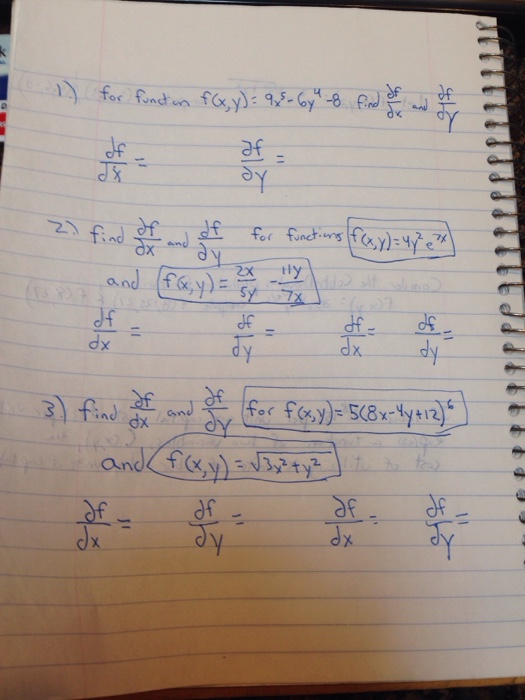 1.) for function f(x,y) = 9x⁵ - 6y⁴ - 8 find ∂f/∂x and ∂f/∂y
∂f/∂x = ∂f/∂y =
2.) find ∂f/∂x and ∂f/∂y for functions f(x,y) = 4y² e⁷ˣ
and f(x,y) = 2x/5y - 11y/7x
∂f/∂x = ∂f/∂y = ∂f/∂x = ∂f/∂y =
3) find ∂f/∂x and ∂f/∂y for f(x,y) = 5(8x-4y+12)⁶
and f(x,y) = √3x²+y²
∂f/∂x = ∂f/∂y = ∂f/∂x = ∂f/∂y =